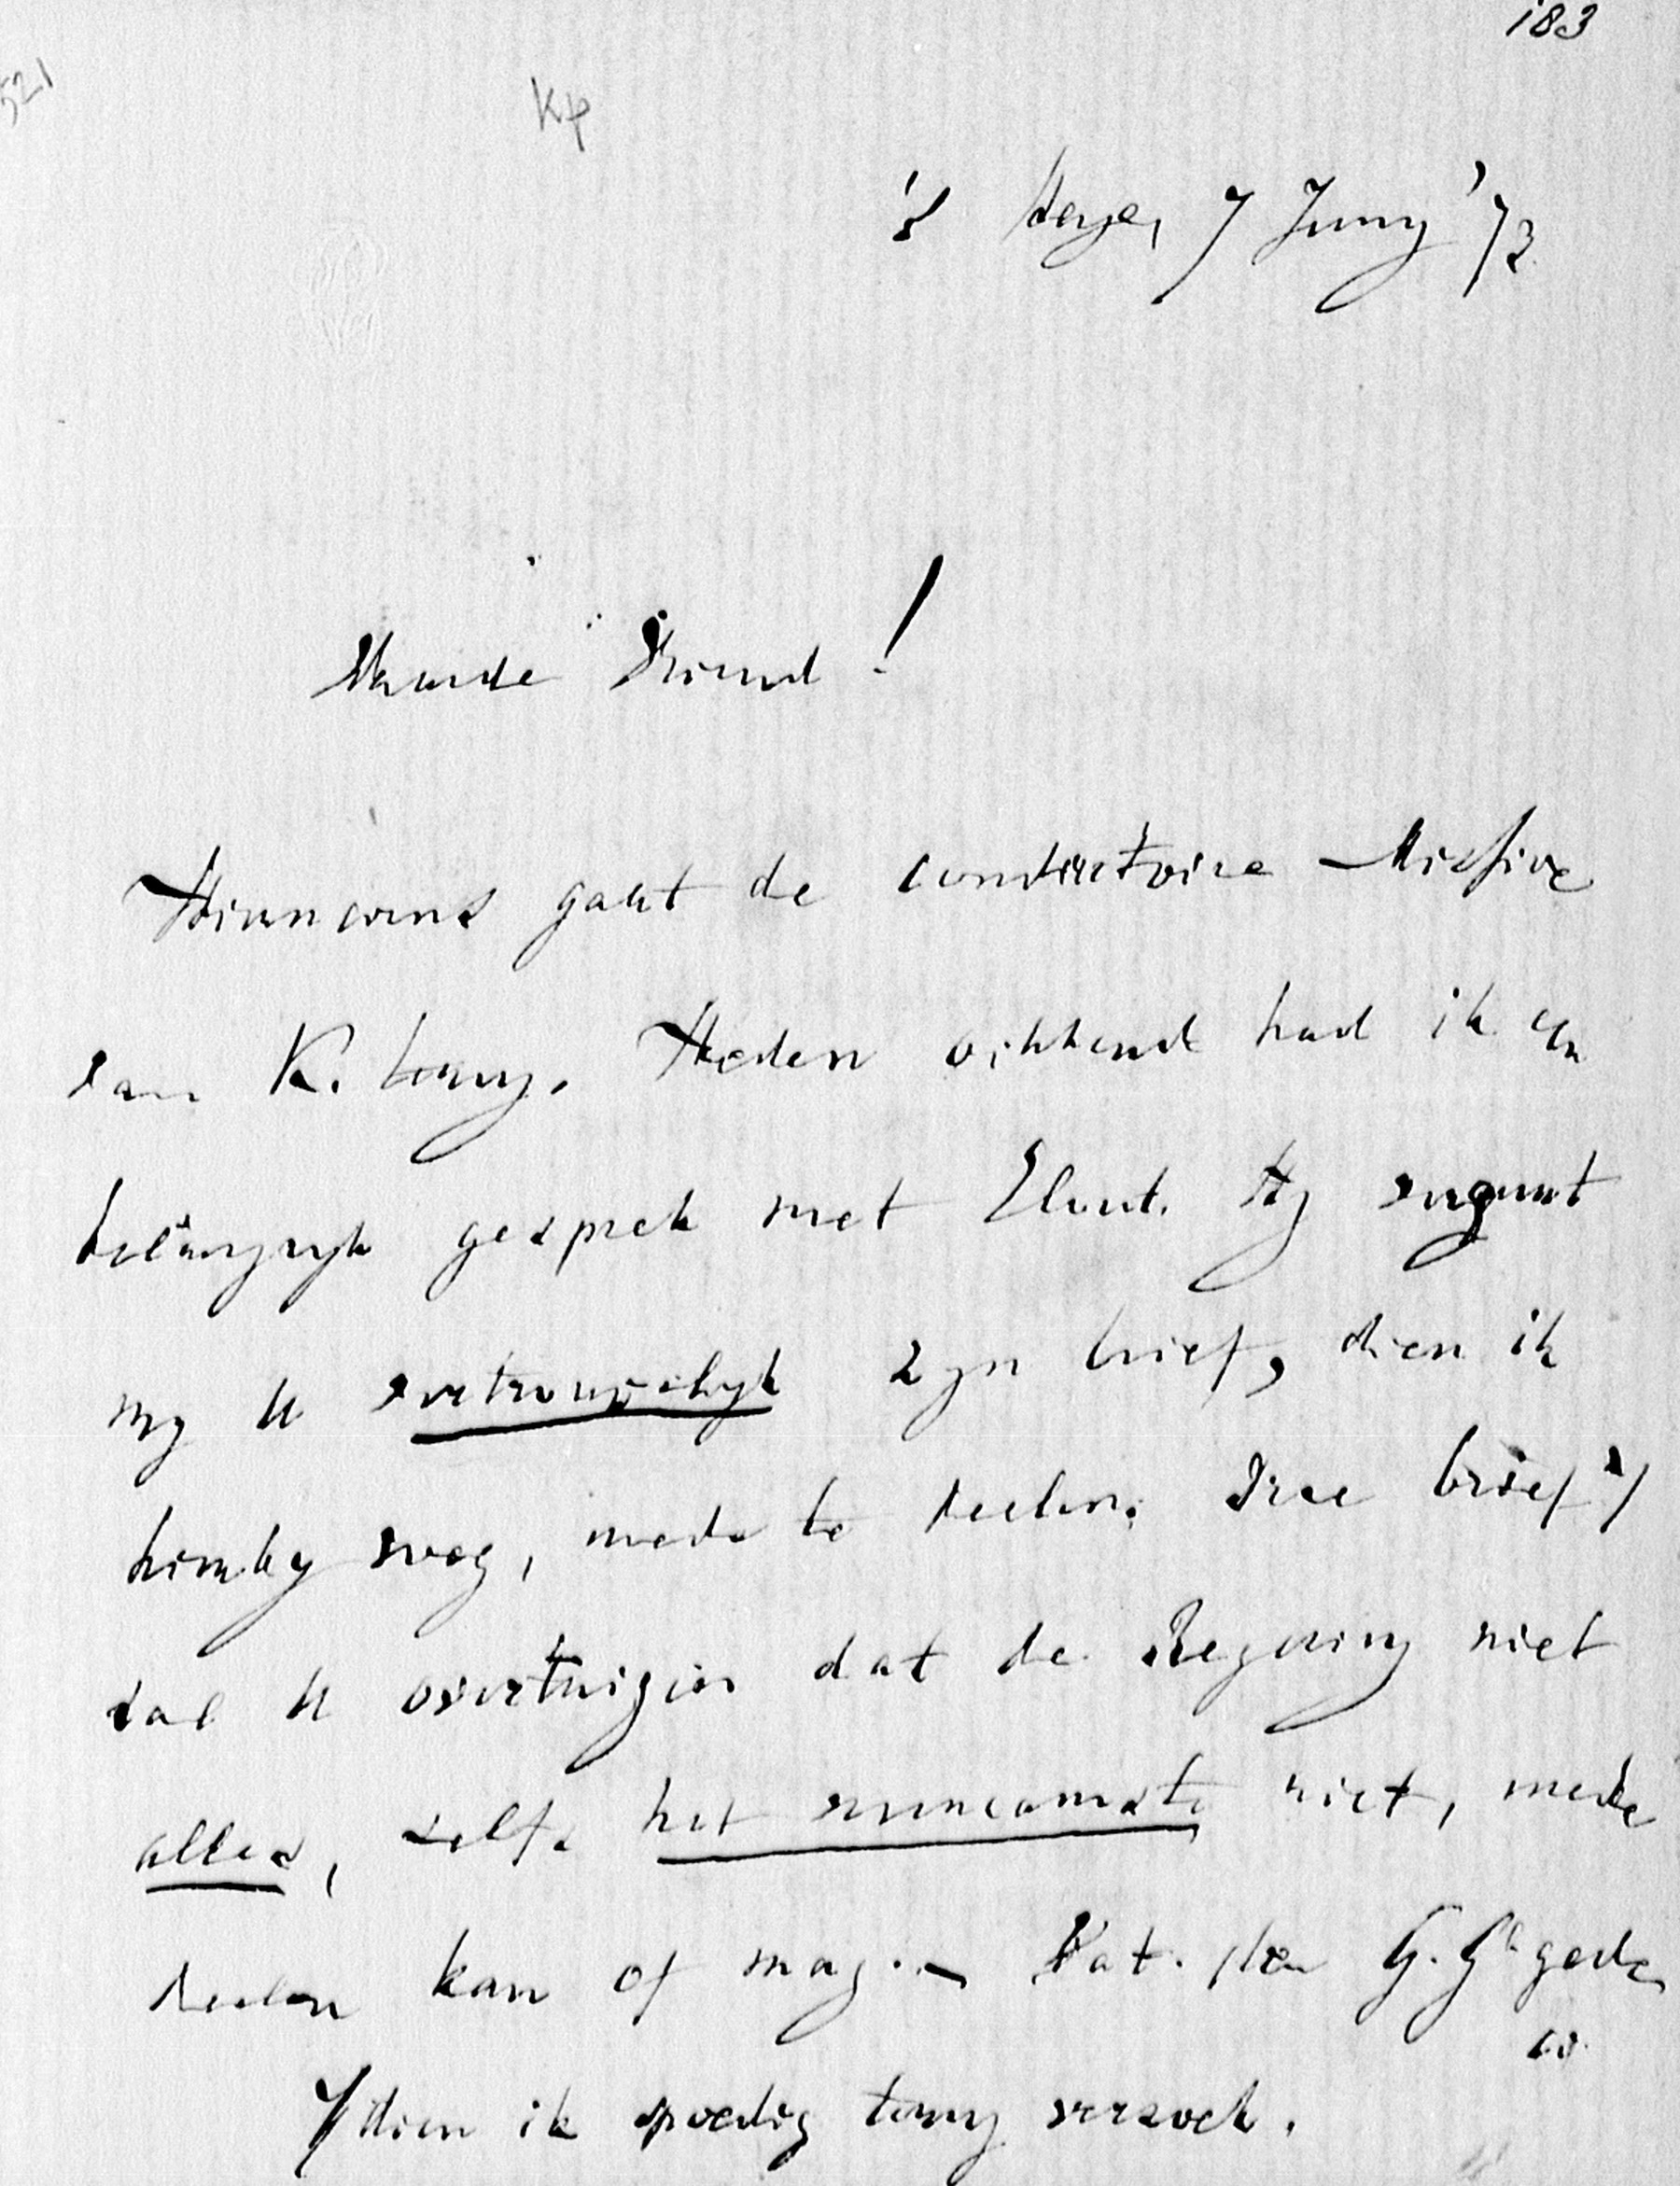 183
521
Kp
's Hage, 7 Juny '73
Waarde Vriend!
Hiernevens gaat de conductoire Missive
van K. terug. Heden ochtend had ik een
belangryk gesprek met Elout. Hy vergunt
my U vertrouwelyk zyn brief, dien ik
hierby voeg, mede te deelen. Deze brief Y
zal U overtuigen dat de Regering niet
alles, zelfs het voornaamste niet, mede
deelen kan of mag. – Dat den G. Gl gede
Y dien ik spoedig terug verzoek.